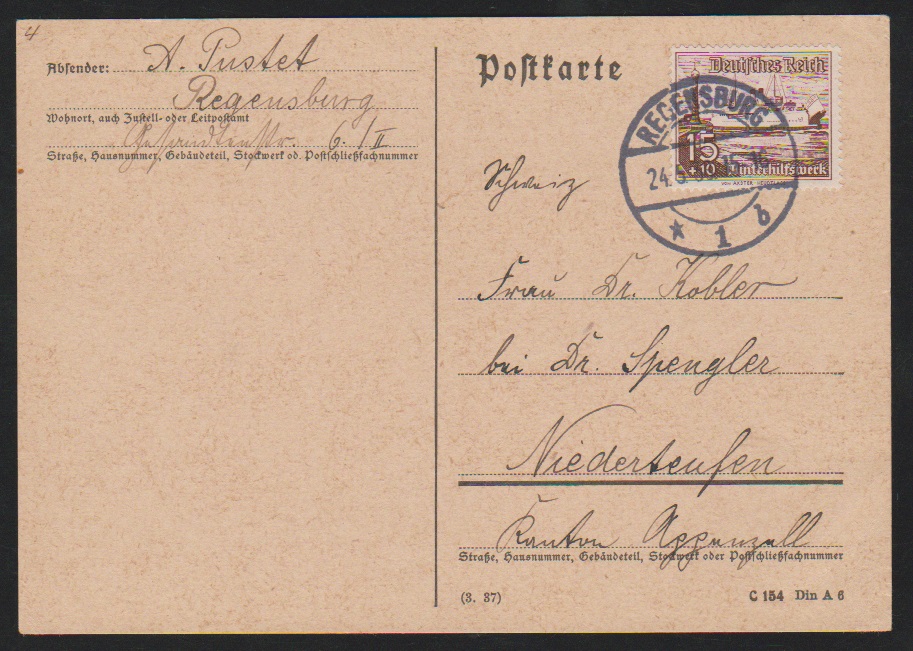 4
Absender: A. Pustet
Regensburg
Wohnort, auch Zustell- oder Leitpostamt
Gesandtenstr. 6./II
Straße, Hausnummer, Gebäudeteil, Stockwerk od. Postschließfachnummer
Postkarte
Deutsches Reich
15
+10 Winterhilfswerk
REGENSBURG
24.
* 1 b
Schweiz
Frau Dr. Kobler
bei Dr. Spengler
Niederteufen
Kanton Appenzell
Straße, Hausnummer, Gebäudeteil, Stockwerk oder Postschließfachnummer
(3. 37)
C 154 Din A 6